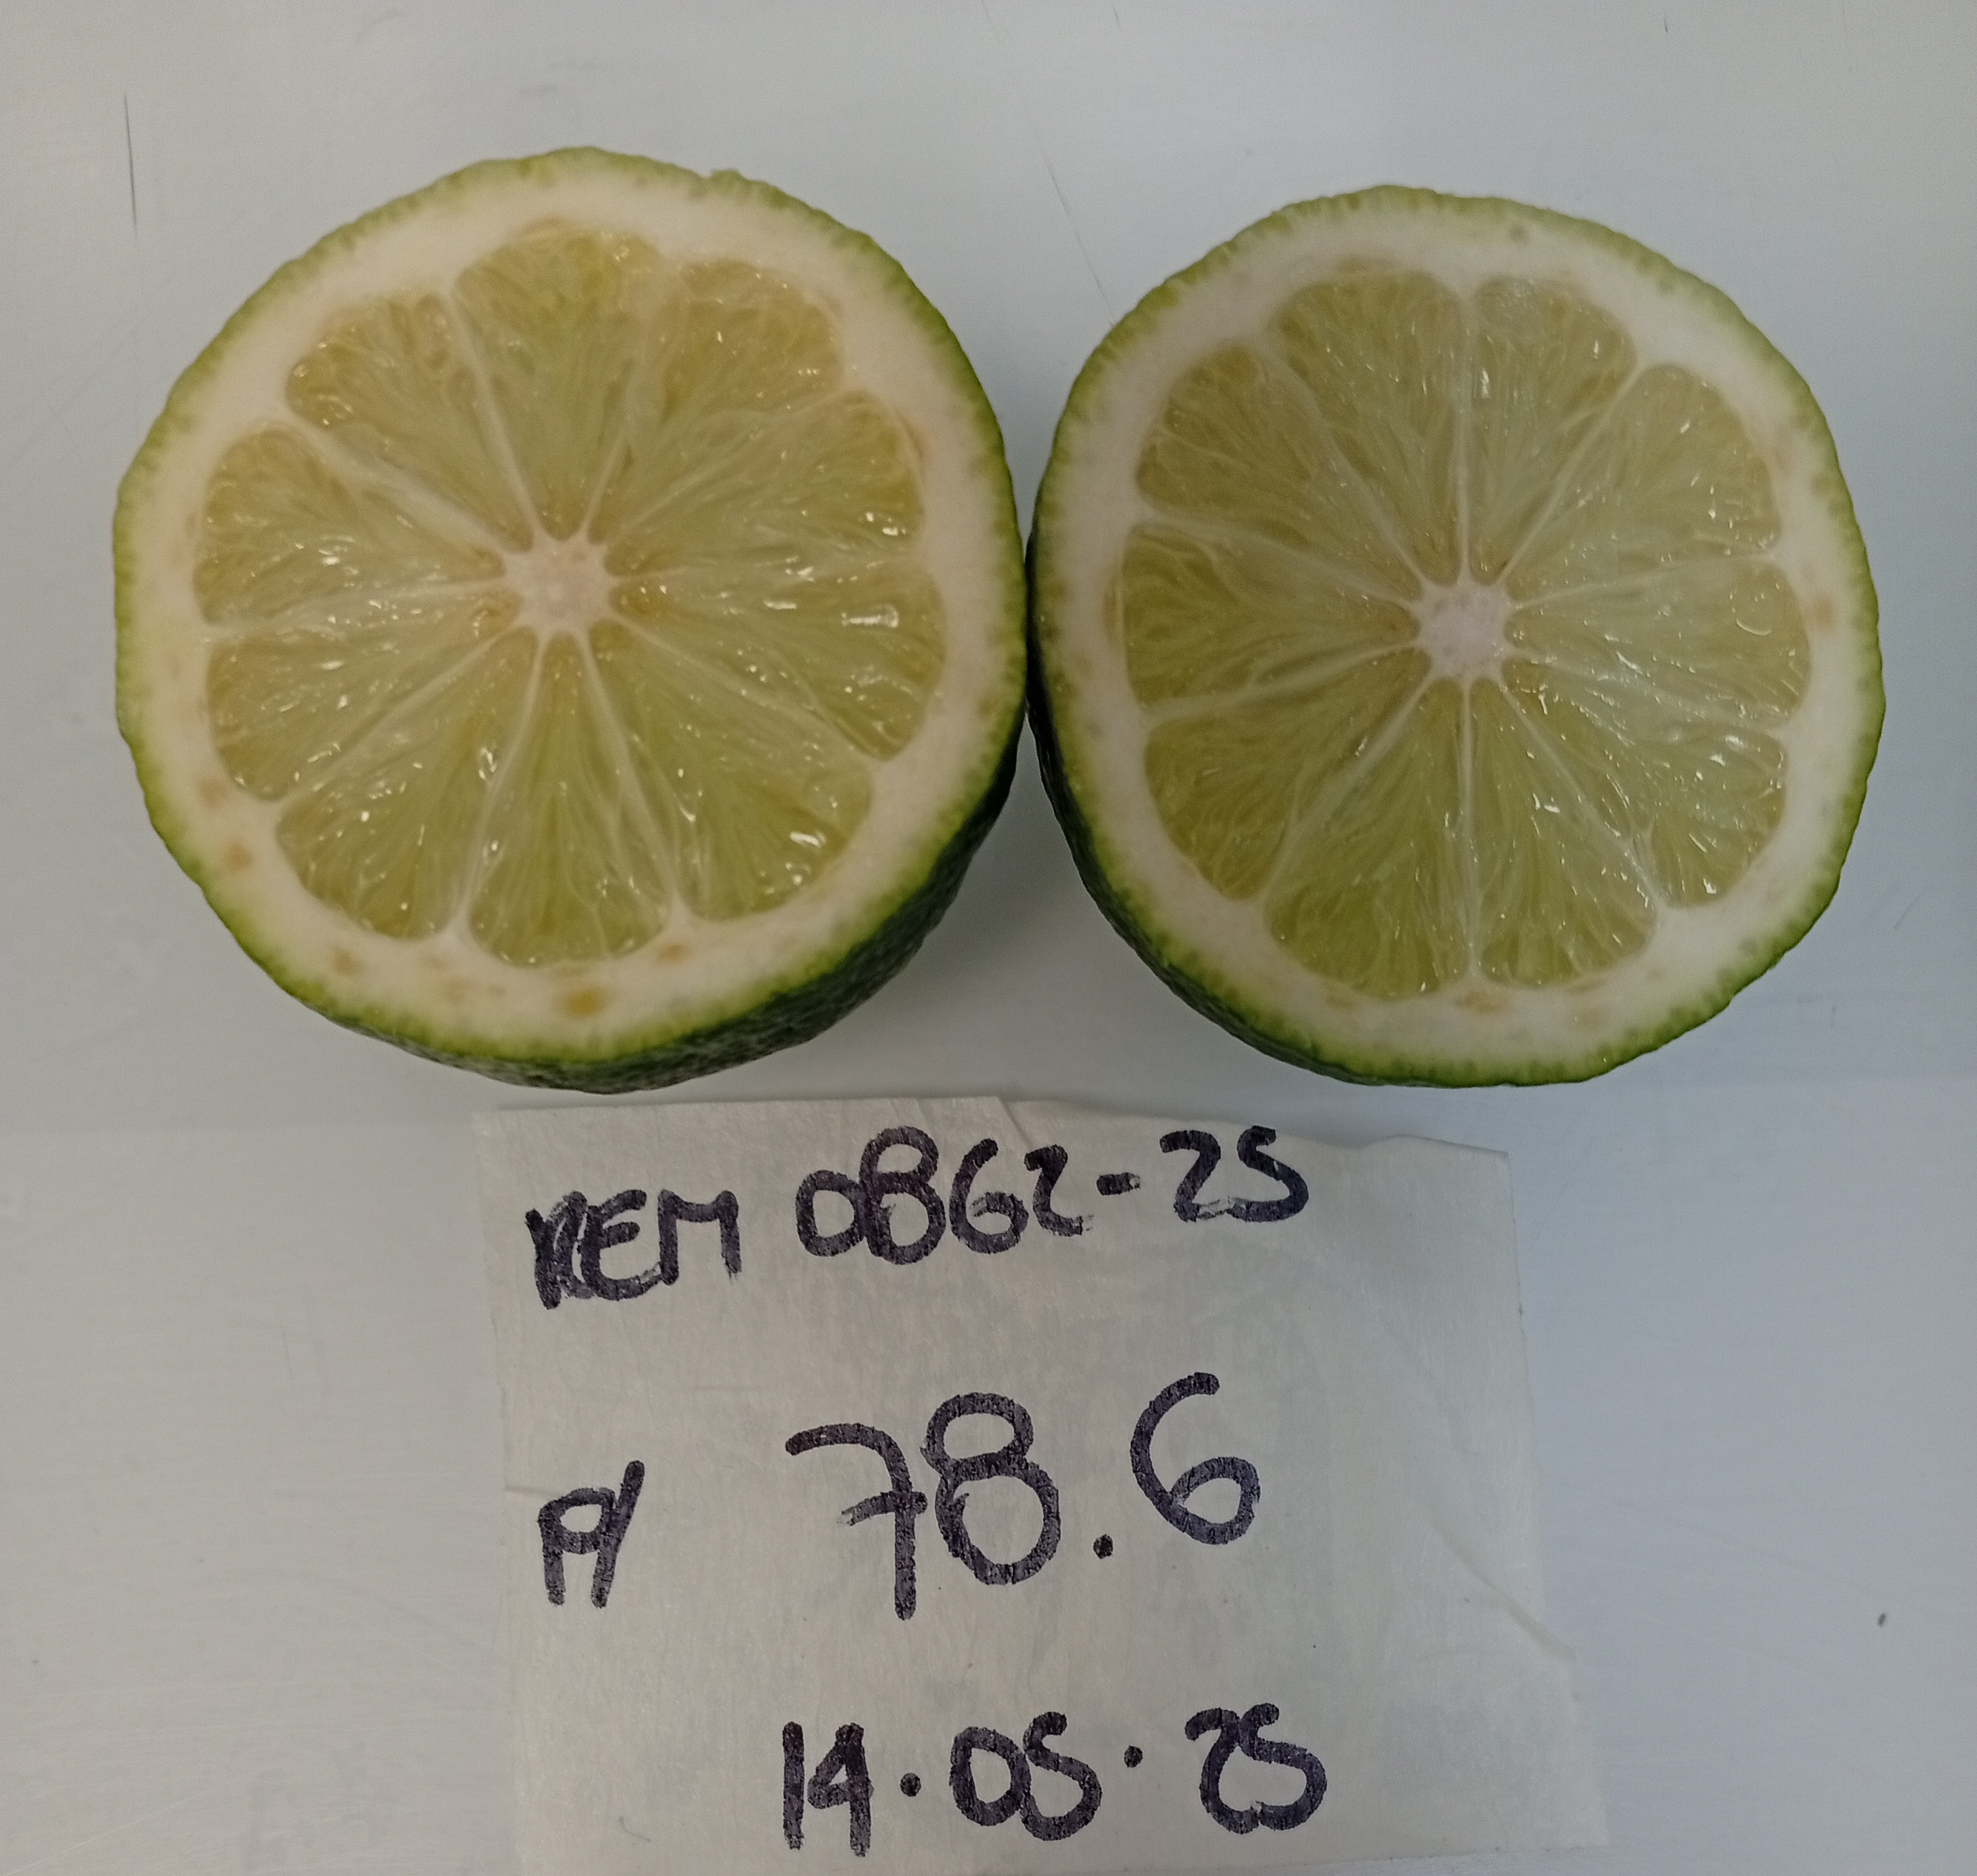 REM 0862-25
P/ 78.6
14.05.25